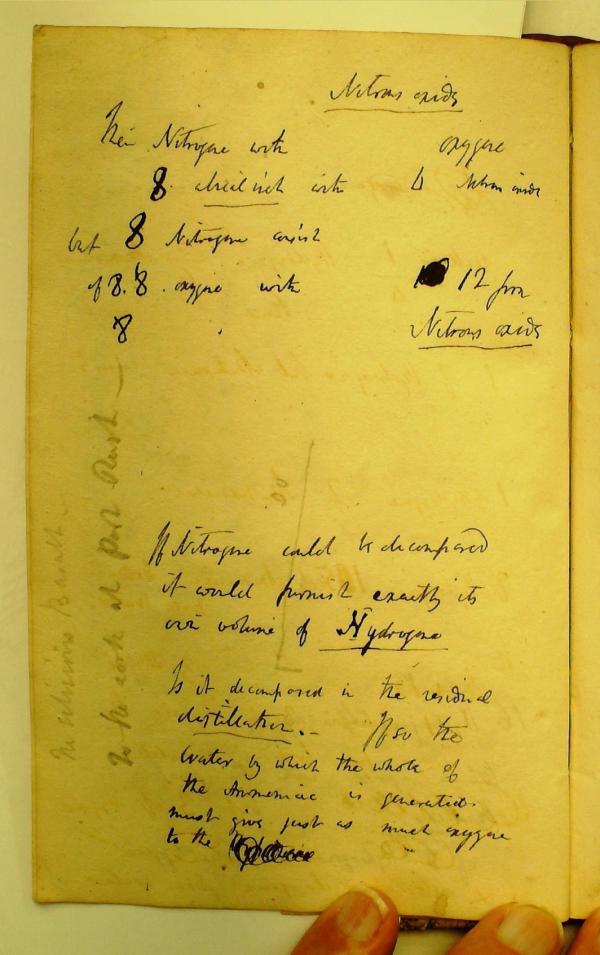 Nitrous oxide
Nitrogene with oxygene
8. with 4 Nitrous oxide
but 8 Nitrogene consist
of 8. oxygene with 12 form
8 Nitrous oxide
If Nitrogene could be decomposed
it would furnish exactly its
own volume of Hydrogene
Is it decomposed in the residual
distillation.— If so the
Water by which the whole of
the Ammoniac is generated
must give just as much oxygene
to the
to the rock at Port Rush